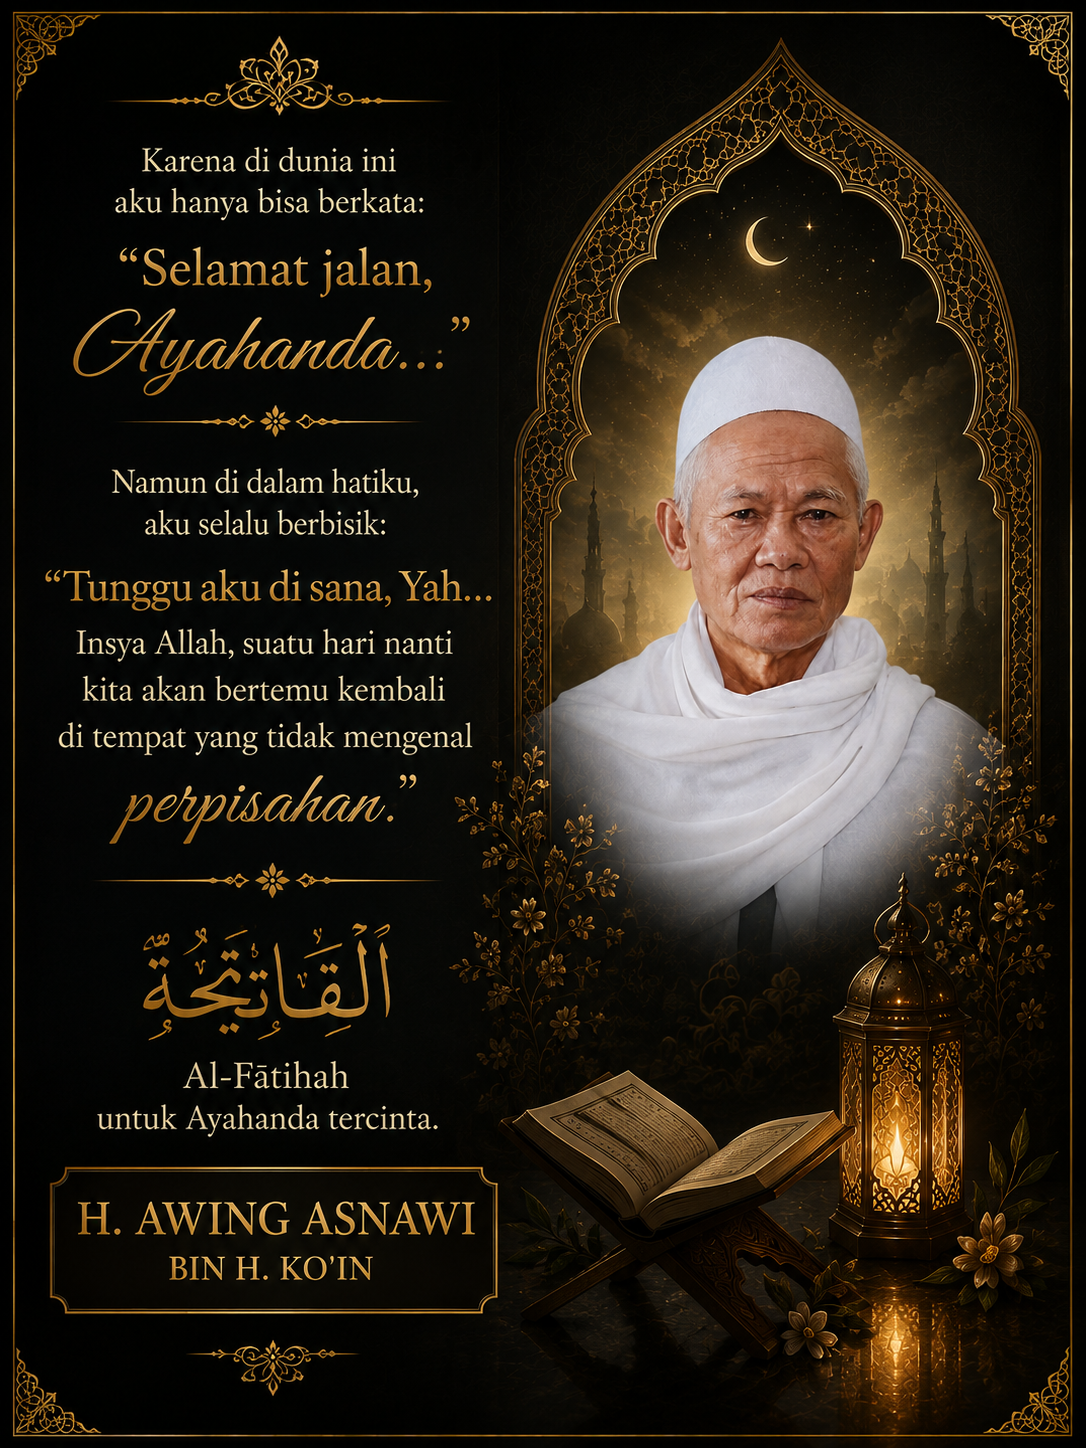 Karena di dunia ini
aku hanya bisa berkata:
“Selamat jalan,
Ayahanda...”
Namun di dalam hatiku,
aku selalu berbisik:
“Tunggu aku di sana, Yah...
Insya Allah, suatu hari nanti
kita akan bertemu kembali
di tempat yang tidak mengenal
perpisahan.”
Al-Fātihah
untuk Ayahanda tercinta.
H. AWING ASNAWI
BIN H. KO'IN